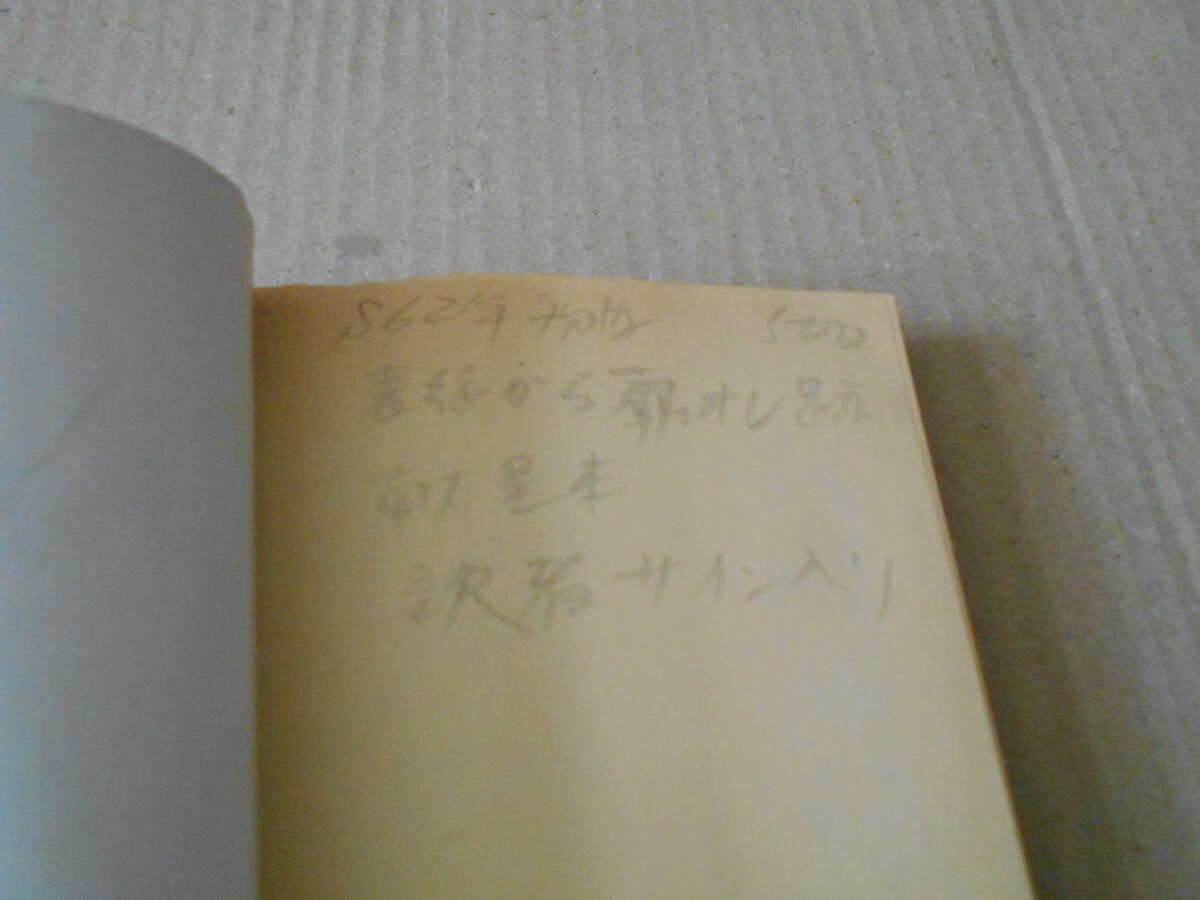 S62年初版 5000
表紙から扉オレ跡
献呈本
訳者サイン入り